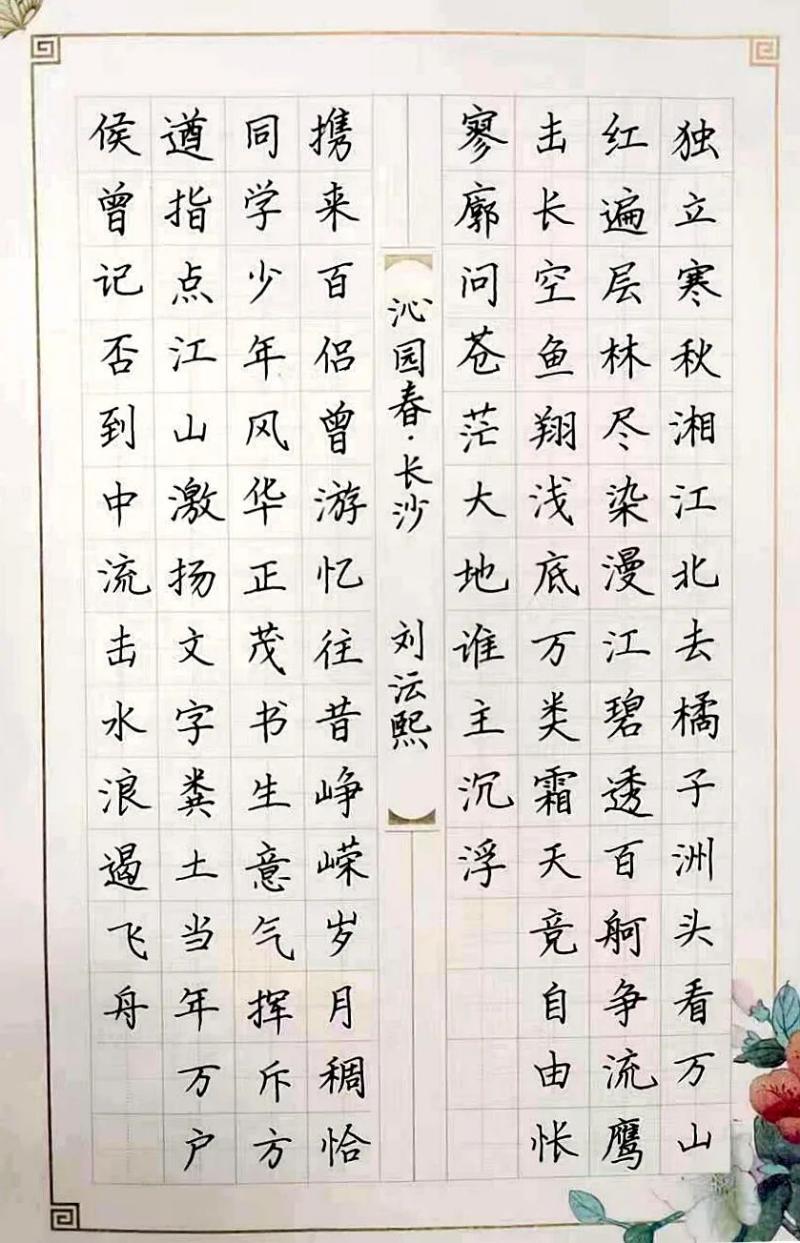 独立寒秋湘江北去橘子洲头看万山
红遍层林尽染漫江碧透百舸争流鹰
击长空鱼翔浅底万类霜天竞自由怅
寥廓问苍茫大地谁主沉浮
沁园春·长沙 刘沄熙
携来百侣曾游忆往昔峥嵘岁月稠恰
同学少年风华正茂书生意气挥斥方
遒指点江山激扬文字粪土当年万户
侯曾记否到中流击水浪遏飞舟